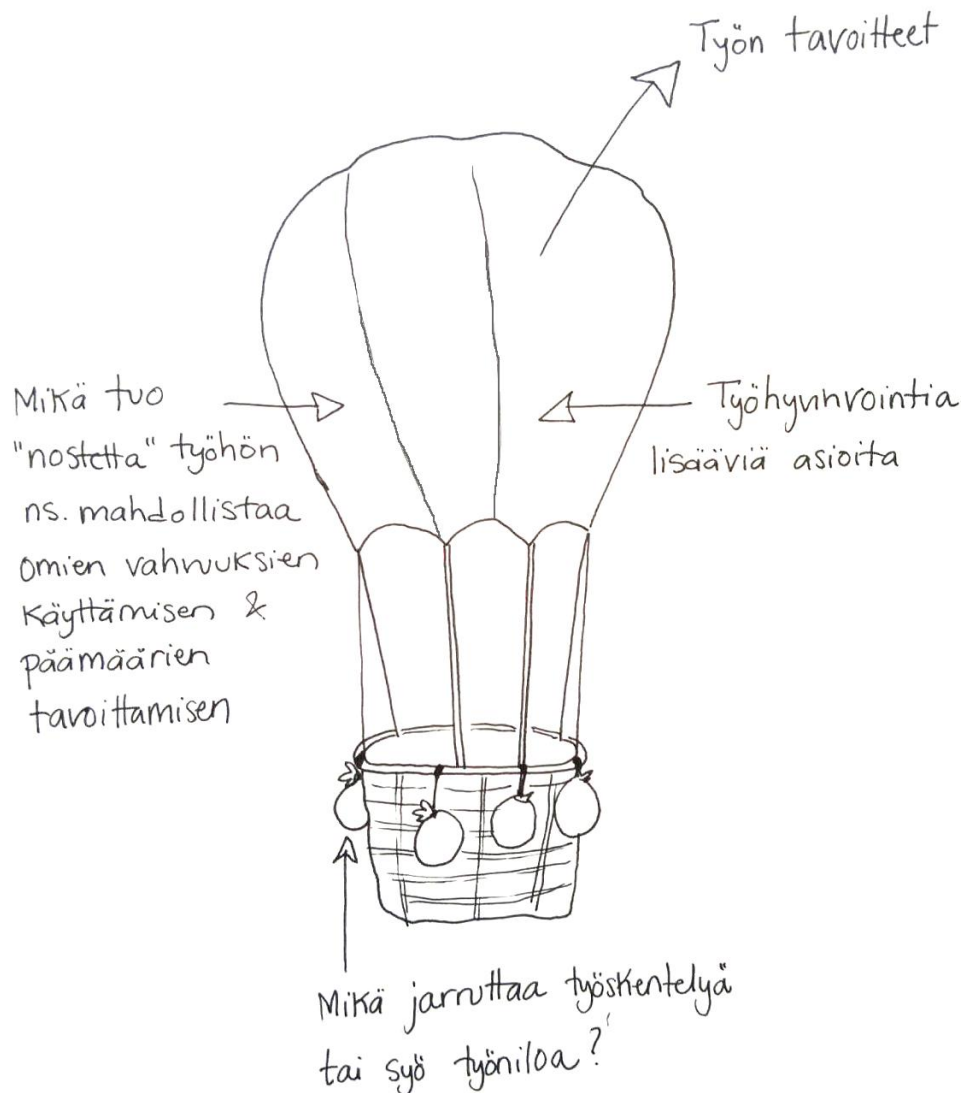 Työn tavoitteet
Mikä tuo
"nostetta" työhön
ns. mahdollistaa
omien vahvuuksien
käyttämisen &
päämäärien
tavoittamisen
Työhyvinvointia
lisääviä asioita
Mikä jarruttaa työskentelyä
tai syö työniloa?